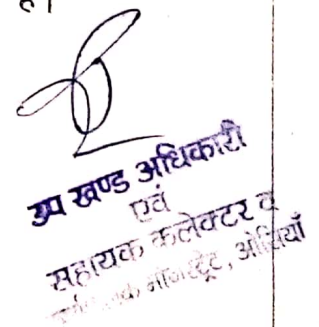 है।
उप खण्ड अधिकारी
एवं
सहायक कलेक्टर व
मजिस्ट्रेट, ओसियाँ